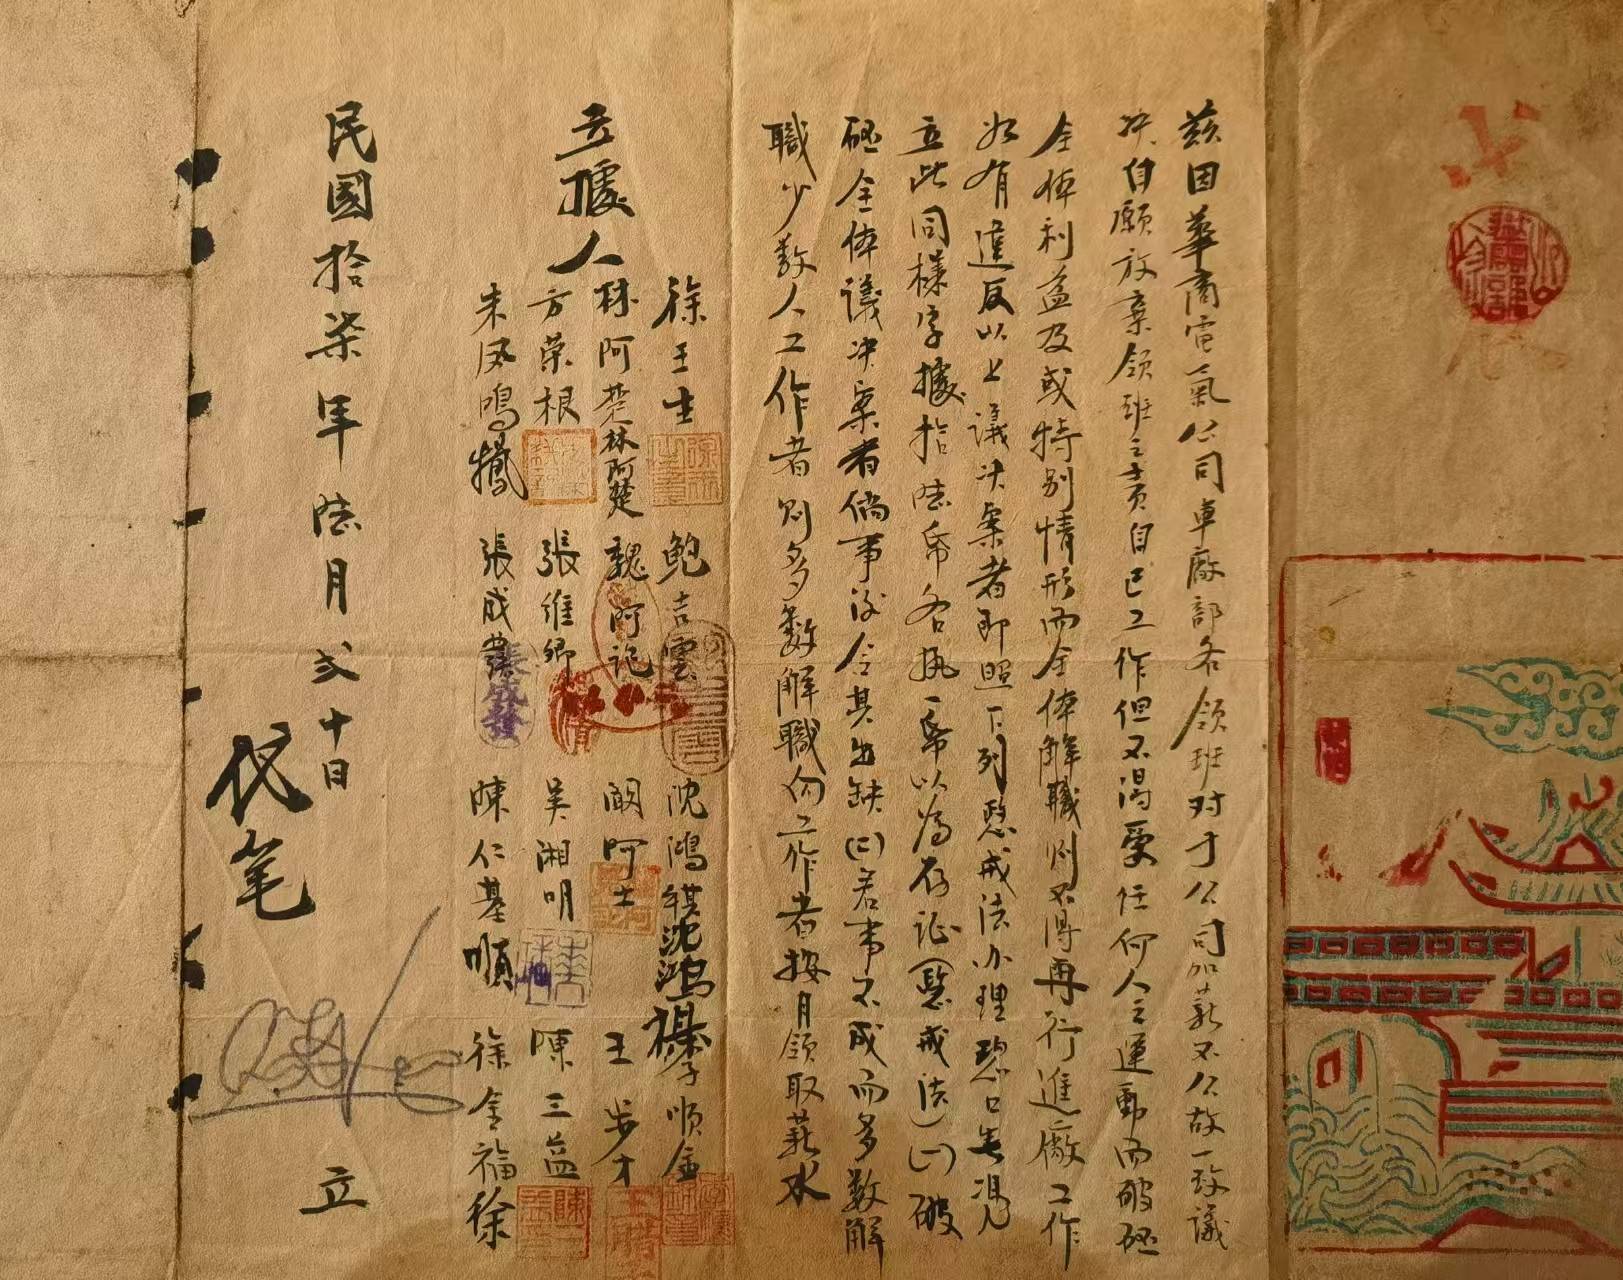 茲因華商電氣公司車廠部各領班对于公司加薪不公故一致議
决自願放棄領班之責自己工作但不得受任何人之運動而破砸
全体利益及或特别情形而全体解職则不得再行進廠工作
如有違反以上議决案者即照下列懲戒法办理恐口無憑
立此同樣字據拾陸帋各執一帋以為存证(懲戒法)(一)破
砸全体議决案者倘事後令其出缺(二)若事不成而多数解
職少数人工作者则多数解職向工作者按月領取薪水
立據人
徐玉生 鲍吉雲 沈鴻祺 沈鸿祺 李順金
林阿楚 林阿楚 魏阿记 顧阿士 王步才
方荣根 張維卿 吴湘明 陳三益
朱凤鳴 張成發 陳仁基 順 徐金福 徐
張成發
民國拾柒年陸月弍十日
代笔
立